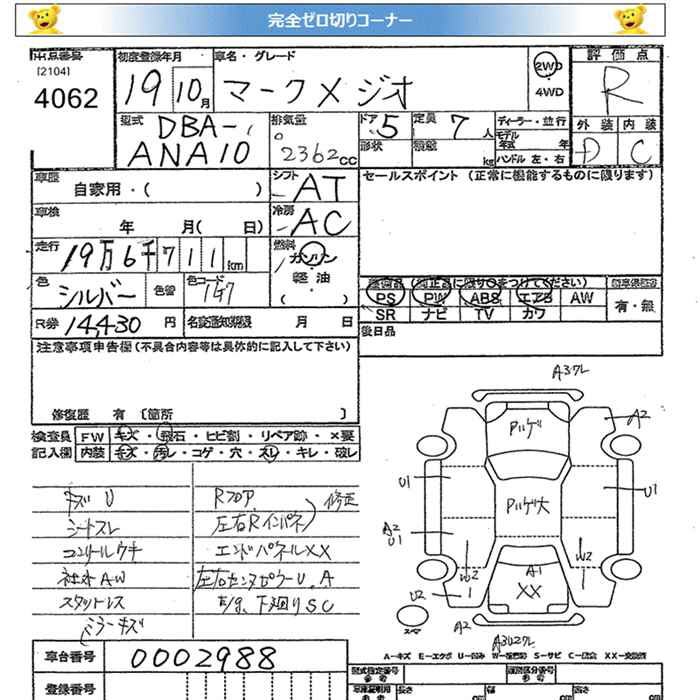 完全ゼロ切りコーナー
出品番号
[2104]
4062
初度登録年月
19 10月
車名・グレード
マークXジオ
2WD
4WD
評価点
R
外装 内装
D C
型式
DBA-
ANA10
排気量
2362cc
ドア 5
形状
定員 7人
積載 kg
ディーラー・並行
モデル年式 年
ハンドル 左・右
車歴
自家用・( )
シフト
AT
セールスポイント (正常に機能するものに限ります)
車検
年 月( 日)
冷房
AC
走行
19万6千711km
燃料
ガソリン
軽油
( )
色
シルバー
色替
色コード
1F7
R券 14430円
名変通知期限 月 日
PS PW ABS エアB AW
SR ナビ TV カワ
有・無
後日品
注意事項申告欄(不具合内容等は具体的に記入して下さい)
修復歴 有 〔箇所 〕
検査員 FW キズ・飛石・ヒビ割・リペア跡・×要
記入欄 内装 キズ・汚レ・コゲ・穴・スレ・キレ・破レ
キズU
シートスレ
コンソールウキ
社外AW
スタットレス
ミラーキズ
Rフロア
左右Rインパネ
修正
エンドパネルXX
左右センタピラーU.A
E/g、下廻りSC
A3ワレ
A2
Pハゲ
U1
U1
Pハゲ大
A2
U1
W2
W2
A1
XX
U2
1
1
A2
スペア
A3U2ワレ
A-キズ E-エクボ U-凹み W-補修跡 S-サビ C-腐食 XX-交換済
車台番号
0002988
登録番号
型式指定番号
参考
類別区分番号
参考
長さ cm
幅 cm
高さ cm